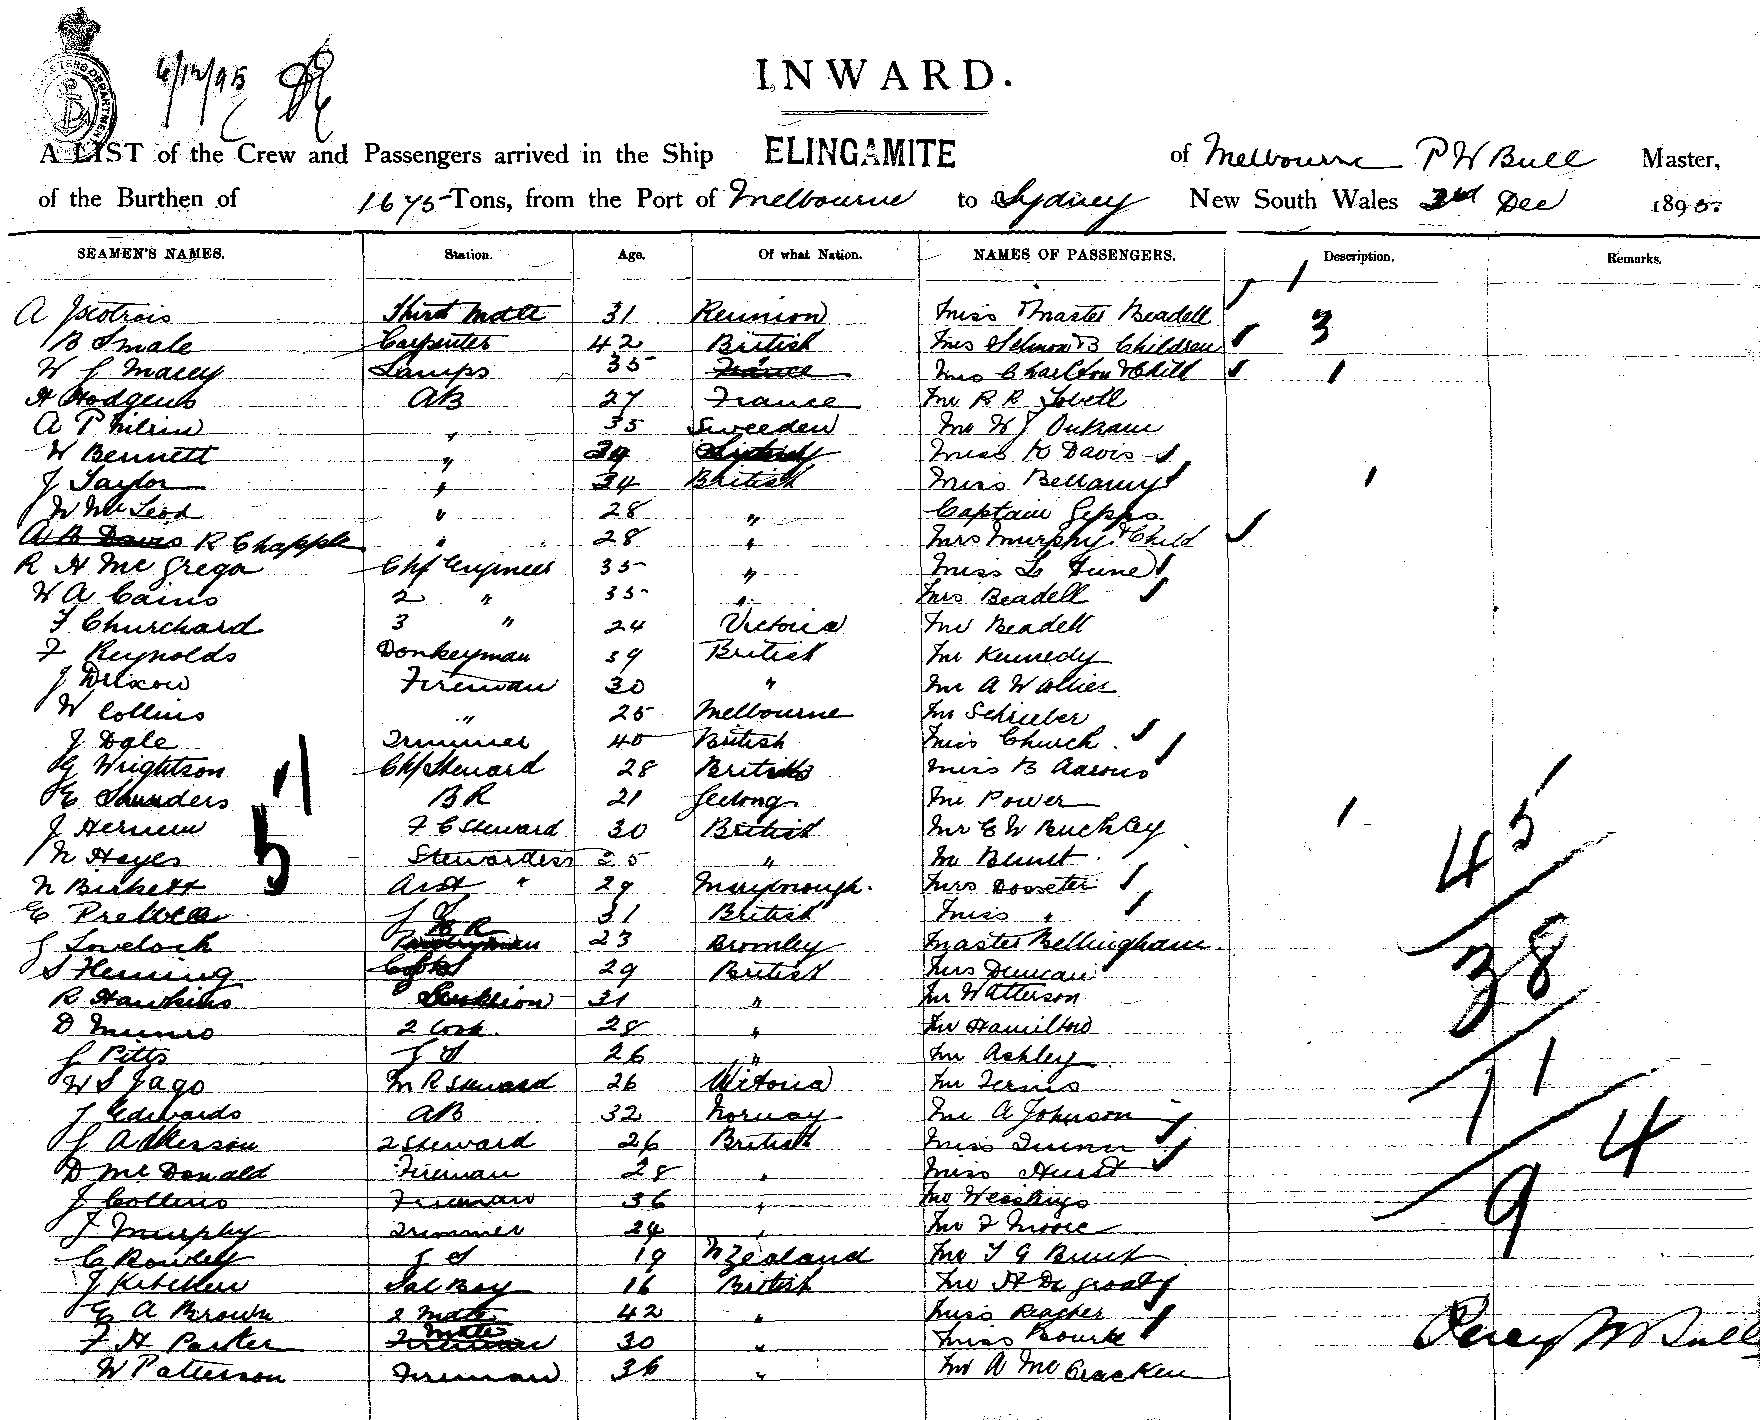 6/12/95
INWARD.
A LIST of the Crew and Passengers arrived in the Ship ELINGAMITE of Melbourne P W Bull Master,
of the Burthen of 1675 Tons, from the Port of Melbourne to Sydney New South Wales 3rd Dec 1895.
SEAMEN'S NAMES. Station. Age. Of what Nation. NAMES OF PASSENGERS. Description. Remarks.
A Third Mate 31 Reunion Miss & Master Beadell 1
B Smale Carpenter 42 British Mrs 3 Children 3
W G Macey Lamps 35 France Mrs Charlton & Child 1
H Hodgens AB 27 France Mr R R
A Philrin " 35 Sweeden Mr W J
W Bennett " 34 Miss K Davis
J Taylor " 34 British Miss Bellamy 1
N McLeod " 28 " Captain Gipps
A B Davis R Chapple " 28 " Mrs Murphy & Child
R H McGregor Chf Engineer 35 " Miss Le
W A Cains 2 " 35 " Mrs Beadell
F Churchard 3 " 24 Victoria Mr Beadell
F Reynolds Donkeyman 39 British Mr Kennedy
J Dixon Fireman 30 " Mr A W
W Collins " 25 Melbourne Mr Schrieber
J Dale Trimmer 40 British Miss Church
G Wrightson Chf Steward 28 British Miss B Aarons
E Saunders BR 21 Geelong Mr Power
J F C Steward 30 British Mr E W Buckley 1
N Hayes Stewardess 25 " Mr Blunt
N Birkett Asst " 29 Maryborough. Mrs Dosseter
E 31 British Miss "
G Lovelock BR 23 Bromley Master Bellingham
S Fleming Cook 29 British Mrs Duncan
R Hawkins 31 " Mr Watterson
D Munro 2 Cook 28 " Mr Hamilton
G Pitts G S 26 " Mr Ashley
W S Jago M R Steward 26 Victoria Mr
J Edwards AB 32 Norway Mr A Johnson
G 2 Steward 26 British Miss Quinn
D McDonald Fireman 28 " Miss Hurst
J Collins Fireman 36 "
J Murphy Trimmer 24 " Mr F Moore
C Rowley G S 19 N Zealand Mr T G
J Kitchen Sal Boy 16 British Mr H De Groat
E A Brown 2 Mate 42 " Miss
F H Parker 2 Mate Fireman 30 " Miss Bourke
W Patterson Fireman 36 " Mr A McCracken
5
45
38
11
9
4
Percy W Bull